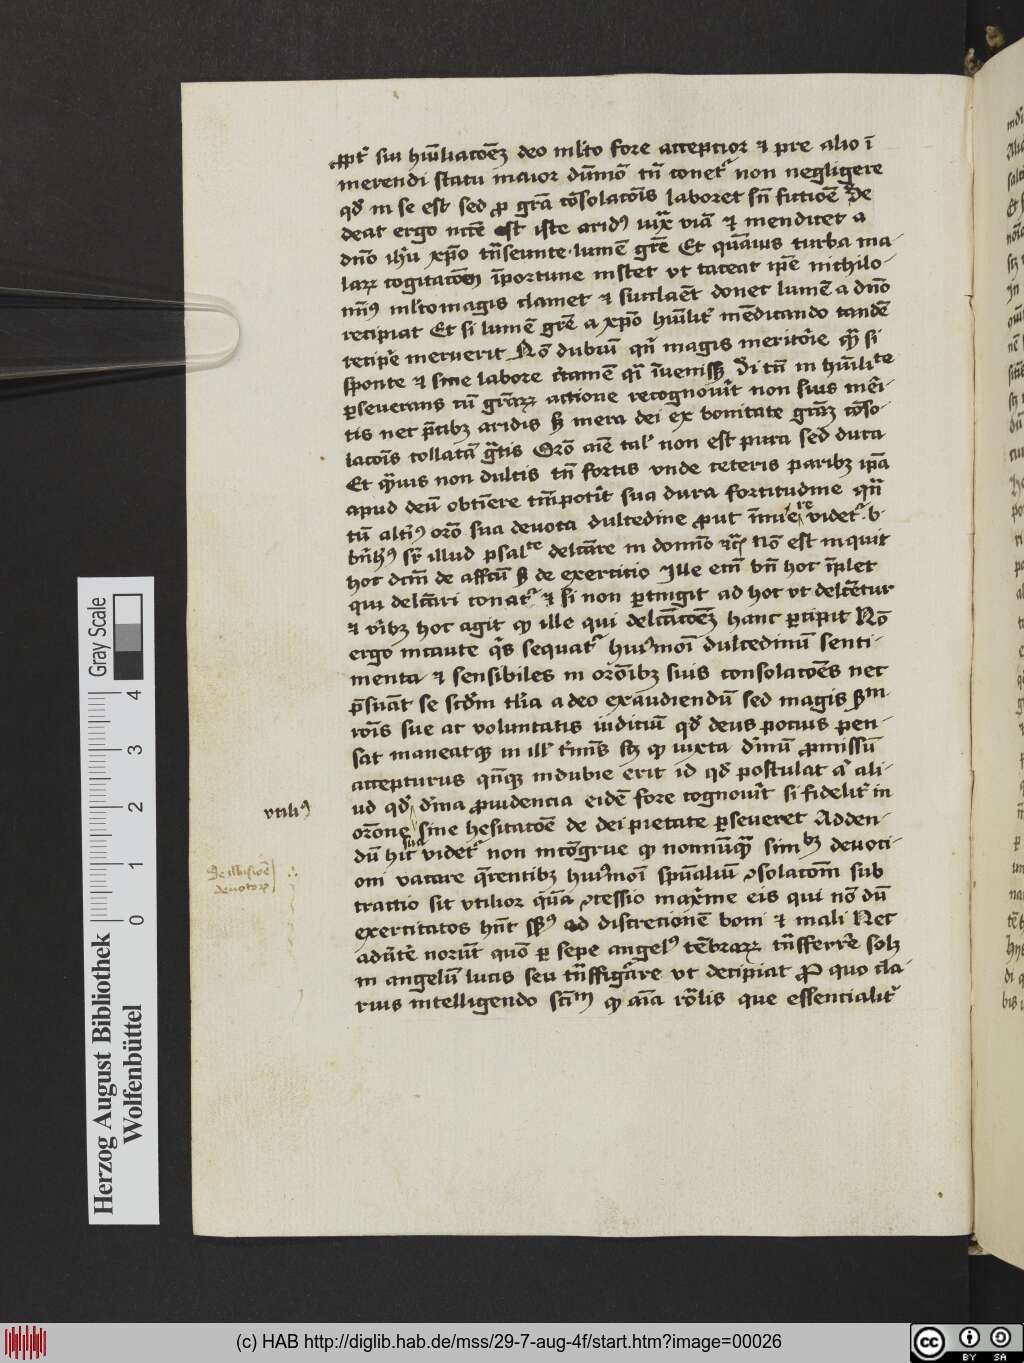 ꝓpt̄ sui hūiliacōeꝫ deo ml̄to fore acceptior ⁊ pre alio ī
merendi statu maior dūmō tn̄ conet᷑ non negligere
qd̄ in se est sed ꝓ grā cōsolacōis laboret sn̄ fictiōe Se
deat ergo nūc est iste aridꝰ iuxͣ viā ⁊ mendicet a
dn̄o ih̄u xp̄o tn̄seunte lumē grē Et quāuis turba ma
larꝝ cogitacōm īportune instet vt taceat ip̄e nichilo
mīꝰ ml̄to magis clamet ⁊ succlaēt donec lumē a dn̄o
recipiat Et si lumē grē a xp̄o hūilit᷑ mēdicando tandē
recip̄e meruerit Nō dubiū qn̄ magis meritōie qͣꝫ si
sponte ⁊ sine labore c̄tamē qͣi īuenissꝫ Si tn̄ in hūilitᵗᵉ
ꝑseuerans cū grāꝝ actione recognouīt non suis mēi
tis nec p̄cibꝫ aridis sꝫ mera dei ex bonitate grāꝫ cōso
lacōis collatā gͣtis Orō aīe tal᷑ non est pura sed dura
Et qͣuis non dulcis tn̄ fortis vnde ceteris paribꝫ ip̄a
apud deū obtīere tm̄ potīt sua dura fortitudine qn̄
tū altīꝰ orō sua deuota dulcedine ꝓut īnuēre videt᷑ b
bn̄hꝰ sr̄ illud psalᵗᵉ delcāre in domīo ⁊c̄ Nō est inquit
hoc dcm̄ de affctū sꝫ de exercicio Ille eīm vn̄ hoc īplet
qui delcāri conat᷑ ⁊ si non ꝑtingit ad hoc vt delctētur
⁊ vͥbꝫ hoc agit qꝫ ille qui delcāctōeꝫ hanc ꝑcipit Nō
ergo incaute qͥs sequat᷑ huiꝰmoī dulcedinū senti
menta ⁊ sensibiles in orōibꝫ suis consolacōes nec
p̄suāt se scd̄m illa a deo exaudiendū sed magis sᵐ
rōis sue ac voluntatis iudiciū qd̄ deus pocius pen
sat maneatqꝫ in ill᷑ t̄mīs scꝫ qꝫ iuxta dīnū ꝓmissū
accepturus qn̄qꝫ indubie erit id qd̄ postulat a᷑ ali
ud qd̄ dīna ꝓuidencia eidē fore cognouīt si fidelit᷑ in
vtiliꝰ
orōne sua sine hesitacōe de dei pietate ꝑseueret Adden
dū hic videt᷑ non incōgrue qꝫ nonnūqͣꝫ simᵇꝫ deuoci
De illusiōe
oni vacare qͣrentibꝫ huiꝰmoī spūaliū ꝯsolacōm sub
deuotoꝝ
tractio sit vtilior qͣā ꝯcessio maxīe eis qui nō dū
exercitatos hn̄t sn̄sꝰ ad discrecionē boni ⁊ mali Nec
adūtē norūt quō ꝑ sepe angelꝰ tēbraꝝ tn̄sfferrē solꝫ
in angelū lucis seu tn̄sfigāre vt decipiat Pro quo cla
rius intelligendo scīᵐ qꝫ aīa rōlis que essencialit᷑
Gray Scale
0 1 2 3 4
Herzog August Bibliothek
Wolfenbüttel
(c) HAB http://diglib.hab.de/mss/29-7-aug-4f/start.htm?image=00026
cc BY SA